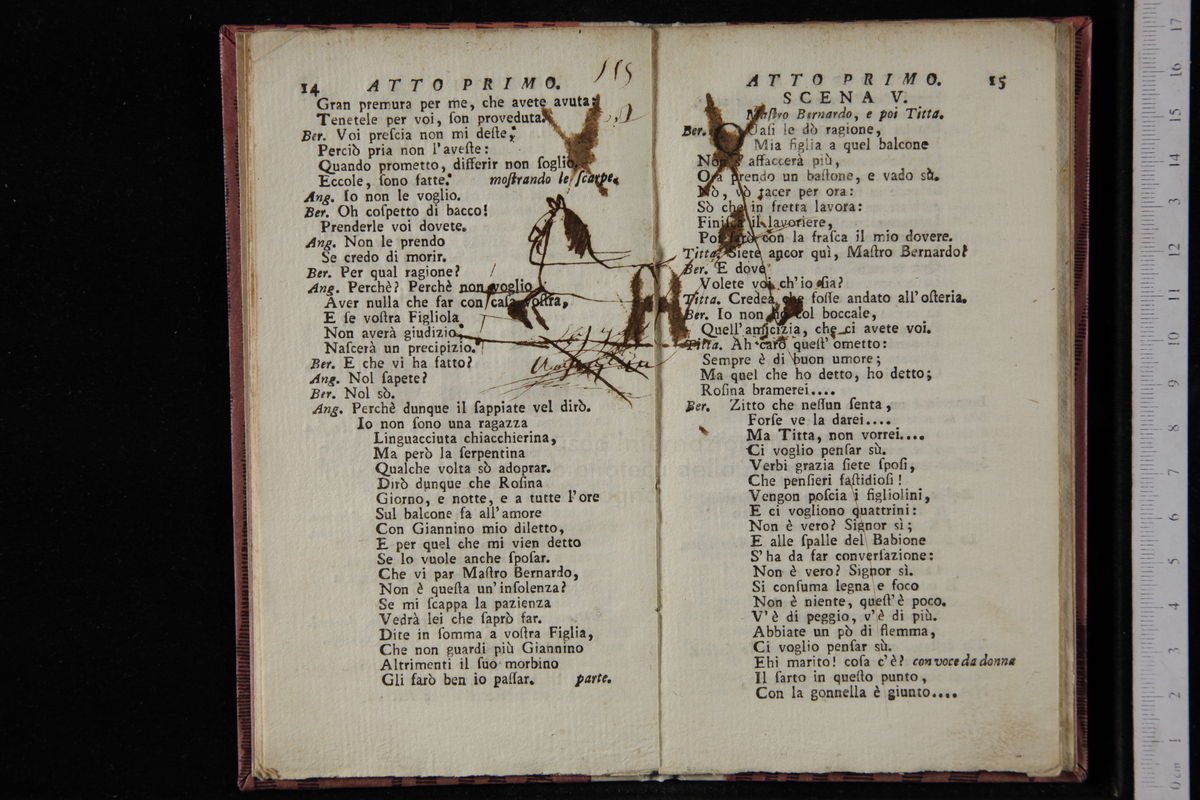 14 ATTO PRIMO. 115
Gran premura per me, che avete avuta:
Tenetele per voi, ſon proveduta.
Ber. Voi preſcia non mi deſte;
Perciò pria non l'aveſte:
Quando prometto, differir non ſoglio.
Eccole, ſono fatte. moſtrando le ſcarpe.
Ang. Io non le voglio.
Ber. Oh coſpetto di bacco!
Prenderle voi dovete.
Ang. Non le prendo
Se credo di morir.
Ber. Per qual ragione?
Ang. Perchè? Perchè non voglio
Aver nulla che far con caſa voſtra,
E ſe voſtra Figliola
Non averà giudizio,
Naſcerà un precipizio.
Ber. E che vi ha fatto?
Ang. Nol ſapete?
Ber. Nol sò.
Ang. Perchè dunque il ſappiate vel dirò.
Io non ſono una ragazza
Linguacciuta chiacchierina,
Ma però la ſerpentina
Qualche volta sò adoprar.
Dirò dunque che Roſina
Giorno, e notte, e a tutte l'ore
Sul balcone fa all'amore
Con Giannino mio diletto,
E per quel che mi vien detto
Se lo vuole anche ſpoſar.
Che vi par Maſtro Bernardo,
Non è queſta un'inſolenza?
Se mi ſcappa la pazienza
Vedrà lei che ſaprò far.
Dite in ſomma a voſtra Figlia,
Che non guardi più Giannino
Altrimenti il ſuo morbino
Gli farò ben io paſſar. parte.
ATTO PRIMO. 15
SCENA V.
Maſtro Bernardo, e poi Titta.
Ber. Quaſi le dò ragione,
Mia figlia a quel balcone
Non s'affaccerà più,
Ora prendo un baſtone, e vado sù.
Nò, vò tacer per ora:
Sò che in fretta lavora:
Finiſca il lavoriere,
Poi farò con la fraſca il mio dovere.
Titta. Siete ancor quì, Maſtro Bernardo?
Ber. E dove
Volete voi ch'io ſia?
Titta. Credea che foſſe andato all'oſteria.
Ber. Io non ho col boccale,
Quell'amicizia, che ci avete voi.
Titta. Ah caro queſt'ometto:
Sempre è di buon umore;
Ma quel che ho detto, ho detto;
Roſina bramerei....
Ber. Zitto che neſſun ſenta,
Forſe ve la darei....
Ma Titta, non vorrei....
Ci voglio penſar sù.
Verbi grazia ſiete ſpoſi,
Che penſieri faſtidioſi!
Vengon poſcia i figliolini,
E ci vogliono quattrini:
Non è vero? Signor sì;
E alle ſpalle del Babione
S'ha da far converſazione:
Non è vero? Signor sì.
Si conſuma legna e foco
Non è niente, queſt'è poco.
V'è di peggio, v'è di più.
Abbiate un pò di flemma,
Ci voglio penſar sù.
Ehi marito! coſa c'è? con voce da donna
Il ſarto in queſto punto,
Con la gonnella è giunto....
0 cm 1 2 3 4 5 6 7 8 9 10 11 12 13 14 15 16 17